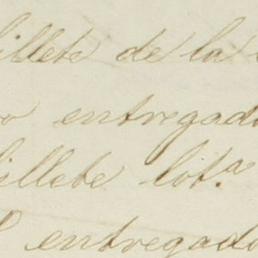 illete de la
o entregado
illete lot.ª
entregado